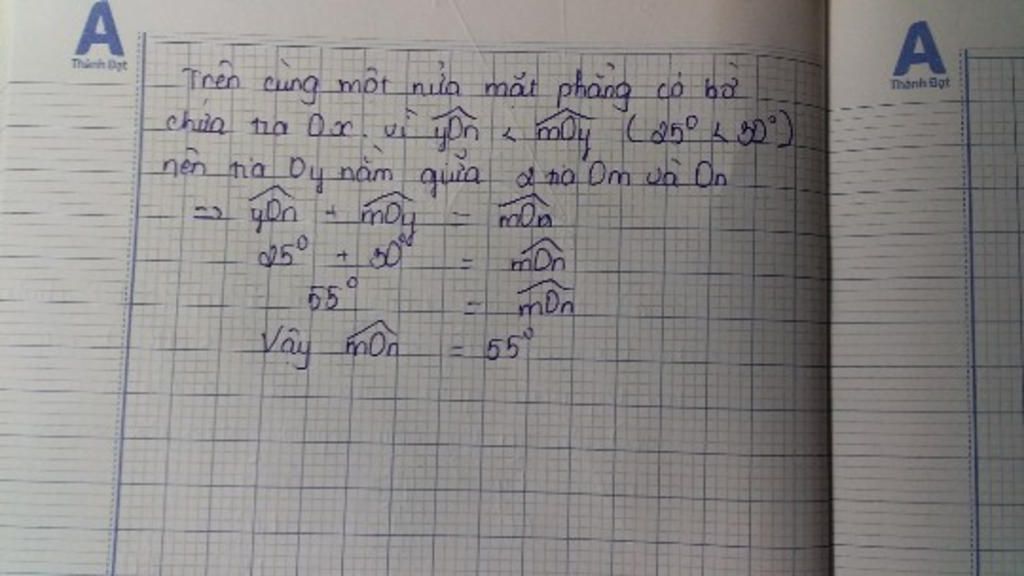 A
Thành Đạt
A
Thành Đạt
Trên cùng một nửa mặt phẳng có bờ
chứa tia Ox. vì yOn < mOy (25° < 30°)
nên tia Oy nằm giữa 2 tia Om và On
=> yOn + mOy = mOn
25° + 30° = mOn
55° = mOn
Vậy mOn = 55°